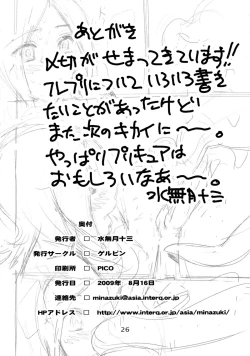 あとがき
〆切がせまってきています!!
フレプリについていろいろ書き
たいことがあったけど
また次のキカイに〜〜。
やっぱりプリキュアは
おもしろいなあ〜。
水無月十三
奥付
発行者 □ 水無月十三
発行サークル □ ゲルピン
印刷所 □ PICO
発行日 □ 2009年 8月16日
連絡先 □ minazuki@asia.interq.or.jp
HPアドレス □ http://www.interq.or.jp/asia/minazuki/
26